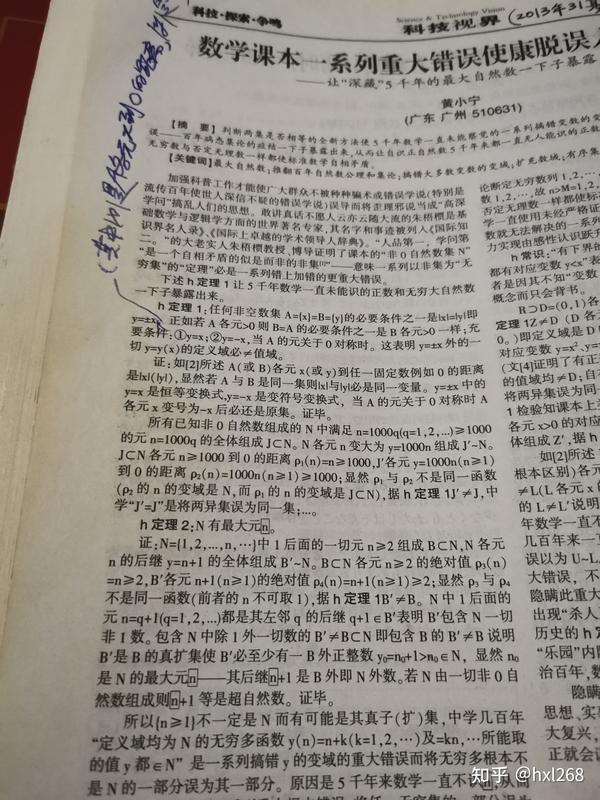 科技·探索·争鸣
Science & Technology Vision
科技视界
(2013年31期
数学课本一系列重大错误使康脱误
——让“深藏”5千年的最大自然数一下子暴露
黄小宁
(广东 广州 510631)
【摘 要】判断两集是否相等的全新方法使5千年数学一直未能察觉的一系列搞错变数的变
误——百年病态集论的症结一下子暴露出来,从而让自识正自然数5千年来都一直无人能识的正数
无穷数与否定无理数一样都使标准数学自相矛盾。
【关键词】最大自然数;推翻百年自然数公理和集论;搞错大多数变数的变域;扩充数域;有序集
加强科普工作才能使广大群众不被种种骗术或错误学说(特别是
流传百年使世人深信不疑的错误学说)误导而将歪理邪说当成“高深
学问”搞乱人们的思想。敢讲真话不愿人云亦云随大流的朱梧槚是基
础数学与逻辑学方面的世界著名专家,其名字和事迹被列入《国际知
识界名人录》、《国际上卓越的学术领导人辞典》。“人品第一,学问第
二。”的大老实人朱梧槚教授、博导证明了课本的“非0自然数集N”
“是一个自相矛盾的似是而非的非集[1]”——意味一系列以非集为“无
穷集”的“定理”必是一系列错上加错的更重大错误。
下述h定理1让5千年数学一直未能识的正数和无穷大自然数
一下子暴露出来。
h定理1:任何非空数集A={x}=B={y}的必要条件之一是|x|=|y|即
y=±x。正如若A各元>0则B=A的必要条件之一是B各元>0一样;充
要条件:①y=x;②y=-x,当A的元关于0对称时。这表明y=±x外的一
切y=y(x)的定义域必≠值域。
证:如[2]所述A(或B)各元x(或y)到任一固定数例如0的距离
是|x|(|y|),显然若A与B是同一集则|x|与|y|必是同一变量。y=±x中的
y=x是恒等变换式,y=-x是变符号变换式,当A的元关于0对称时A
各元x变号为-x后必还是原集。证毕。
所有已知非0自然数组成的N中满足n=1000q(q=1,2,...)≥1000
的元n=1000q的全体组成J⊂N。N各元n变大为y=1000n组成J′~N。
J⊂N各元n≥1000到0的距离ρ1(n)=n≥1000,J′各元y=1000n(n≥1)
到0的距离ρ2(n)=1000n(n≥1)≥1000;显然ρ1与ρ2不是同一函数
(ρ2的n的变域是N,而ρ1的n的变域是J⊂N),据h定理1J′≠J,中
学“J′=J”是将两异集误为同一集;…。
h定理2:N有最大元n。
证:N={1,2,...,n,…}中1后面的一切元n≥2组成B⊂N,N各元
n的后继y=n+1的全体组成B′~N。B⊂N各元n≥2的绝对值ρ3(n)
=n≥2,B′各元n+1(n≥1)的绝对值ρ4(n)=n+1(n≥1)≥2;显然ρ3与ρ4
不是同一函数(前者的n不可取1),据h定理1B′≠B。N中1后面的
元n=q+1(q=1,2,...)都是其左邻q的后继q+1∈B′表明B′包含N一切
非1数。包含N中除1外一切数的B′≠B⊂N即包含B的B′≠B说明
B′是B的真扩集使B′必至少有一B外正整数y0=n0+1>n0∈N,显然n0
是N的最大元n——其后继n+1是B外即N外数。若N由一切非0自
然数组成则n+1等是超自然数。证毕。
所以{n≥1}不一定是N而有可能是其真子(扩)集,中学几百年
“定义域均为N的无穷多函数y(n)=n+k(k=1,2,…)及=kn,…所能取
的值y都∈N”是一系列搞错y的变域的重大错误而将无穷多根本不
是N的一部分误为其一部分。原因是5千年来数学一直不
论断定无穷数列1,2,…
数1,2,…,故n>M=1,2,
否定无理数一样都使标
学一直使用未经严格证
数就无法解决的一系列
力实现由感性认识跃升
h常识:“有下界的
都有对应变数y<x”表
者是因其不知“变数
概念而只会背书。
R⊃D=(0,1)各
定理1Z≠D(D各
0。)即定义域是D
对应变数y=x²、y=
(文[4]证明了有正
的值域均≠D;自
将两异集误为同一
1检验知课本上
各元x>0的对应
体组成Z′,据h
如[2]所述
根本区别)各元
≠L(L各元x的
的L≠L′说明
年数学一直不
几百年来一直
误以为U~L
大错误,不
隐瞒此重大
出现“杀人
历史的h定
“乐园”内
治百年,数
隐瞒
思想、实
大复兴,
正就会
知乎 @hxl268